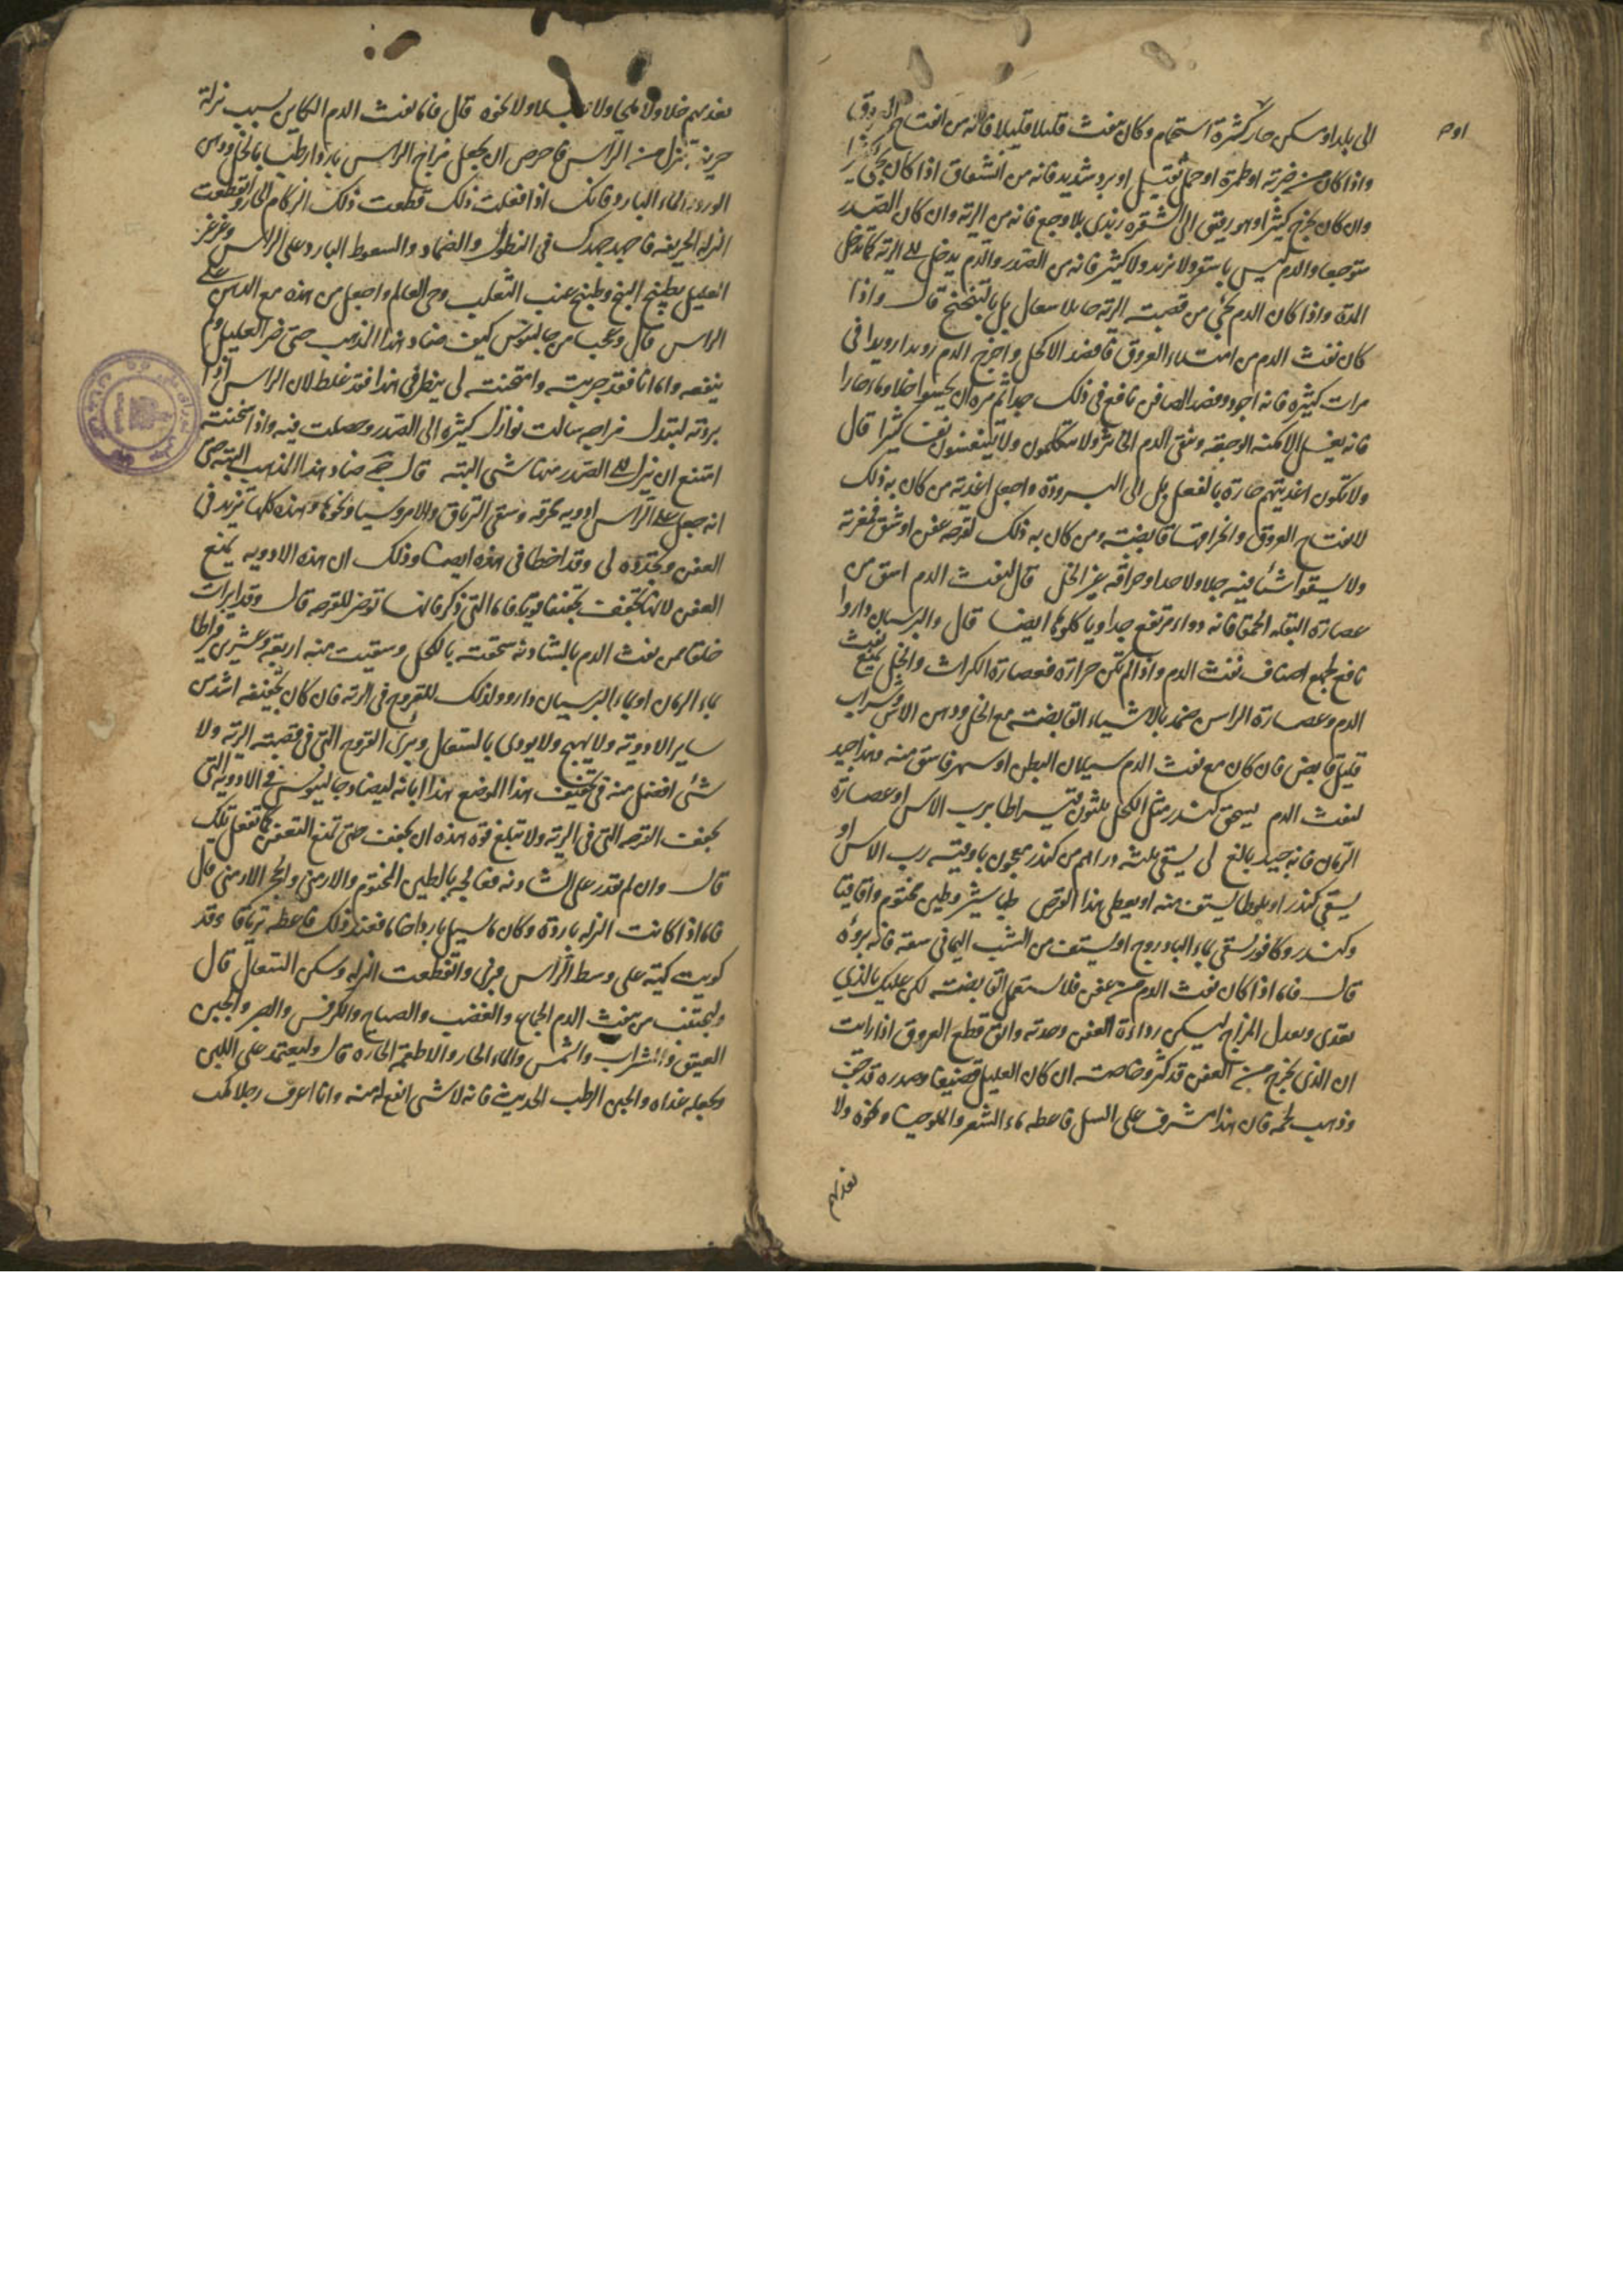 الى بلد او سكن حار كثرة استحمام وكان ينفث قليلا قليلا فانه من انفتاح العروق
واذا كان من ضربة او طفرة او حمل ثقيل او برد شديد فانه من انشقاق اذا كان يجئ كثيرا
وان كان يخرج كثيرا وهو رقيق الى الشقره زبدى بلا وجع فانه من الرية وان كان الصدر
متوجعا والدم ليس ولا زبد ولا كثير فانه من الصدر والدم يدخل الى الرية كما تدخل
المدة واذا كان الدم يجئ من قصبة الرية جا بلا سعال بل بالتنخنخ قال واذا
كان نفث الدم من امتلاء العروق فافصد الاكحل واخرج الدم رويدا رويدا فى
مرات كثيرة فانه اجود وفصد الصافن نافع فى ذلك جدا ثم مره ان يحسوا خلا وماء حارا
فانه يغسل الامكنه الوجعه وينقى الدم الخاثر ولا يتكلمون ولا يتنفسون نفسا كثيرا قال
ولا تكون اغذيتهم حارة بالفعل بل الى البرودة واجعل اغذية من كان به ذلك
لانفتاح العروق وانخراقها قابضة ومن كان به ذلك لقرحه عفن او شق فمغرية
ولا يسقوا شئا فيه جلا ولا حدا وحراقه غير الخل قال لنفث الدم اسق من
عصارة البقله الحمقا فانه دواء مرتفع جدا وياكلوها ايضا قال والبرسيان دارو
نافع لجميع اصناف نفث الدم واذا لم تكن حرارة فعصارة الكراث والخل يمنع نفث
الدم وعصارة الراس ضمد بالاشياء القابضة مع الخل ودهن الاس وشراب
قليل قابض فان كان مع نفث الدم سيلان البطن او سهر فاسق منه وهذا جيد
لنفث الدم يسحق كندر مثل الكحل ثلثون قيراطا برب الاس او عصارة
الرمان فانه جيد بالغ لى يسقى ثلثه دراهم من كندر معجون باوقية رب الاس او
يسقى كندر او بلوطا يستف منه او يعطى هذا القرص طباشير وطين مختوم واقاقيا
وكندر وكافور يسقى بماء البادروج او يستف من الشب اليمانى سفه فانه برؤه
قال فاما اذا كان نفث الدم من عفن فلا تستعمل القابضة لكن عليك بالذي
يغدى ويعدل المزاج ليسكن رداءة العفن وحدته والق قطع العروق اذا رايت
ان الذى يخرج من العفن قد كثر وخاصة ان كان العليل قضيفا وصدره قد جف
وذهب لحمه فان هذا مشرف على السل فاعطه ماء الشعير والملوخيا ونحوه ولا
تغذيهم
تغذيهم خلا ولا ملحا ولا ولا نحوه قال فاما نفث الدم الكاين بسبب نزلة
حريفة تنزل من الراس فاحرص ان يجعل مزاج الراس باردا رطبا بالخل ودهن
الورد والماء البارد فانك اذا فعلت ذلك قطعت ذلك الزكام الحار وانقطعت
النزله الحريفه فاجهد جهدك فى النطول والضماد والسعوط البارد على الراس وغرغر
العليل بطبيخ البنج وطبيخ عنب الثعلب وحى العالم واجعل من هذه مع الدهن على
الراس قال وعجبا من جالينوس كيف ضاد هذا المذهب حتى ضر العليل ولم
ينفعه واما انا فقد جربته وامتحنته لى ينظر فى هذا فقد غلط لان الراس اذا
بردته لتبدل مزاجه سالت نوازل كثيرة الى الصدر وحصلت فيه واذا سخنته
امتنع ان ينزل الى الصدر منها شئى البته قال ضاد هذا المذهب البته حتى
انه جعل على الراس ادويه محرقه وسقى الترياق والامروسيا ونحوها وهذه كلها تزيد فى
العفن وتجدده لى وقد اخطا فى هذه ايضا وذلك ان هذه الادويه يمنع
العفن لانها تجفف تجفيفا قويا فاما التى ذكر فانها توضر للقرحه قال وقد ابرات
خلقا من نفث الدم بالشادنه سحقته كالكحل وسقيت منه اربعة وعشرين قيراطا
بماء الرمان او بماء البرسيان دارو ولذلك للقروح فى الرية فان كان تجفيفه اشد من
ساير الادوية ولا يهيج ولا يودى بالسعال ويبرئ القروح التى فى قصبة الرية ولا
شئ افضل منه فى تجفيف هذا الوضع هذا ابانه ليضاد جالينوس فى الادوية التى
تجفف القرحه التى فى الرية ولا تبلغ قوة هذه ان تجفف حتى تمنع التعفن كما تفعل تلك
قال وان لم تقدر على الشادنه فعالجه بالطين المختوم والارمنى والحجر الارمنى قال
فاما اذا كانت النزله باردة وكان ما يسيل باردا خاما فعند ذلك فاعطه ترياقا وقد
كويت كية على وسط الراس فبرئ وانقطعت النزله وسكن السعال قال
وليجتنب من ينفث الدم الجماع والغضب والصياح والكرفس والصبر والجبن
العتيق والشراب والشمس والماء الحار والاطعمة الحاره قال وليعتمد على اللبن
ويجعله غذاه والجبن الرطب الحديث فانه لا شئى انفع له منه وانا اعرف رجلا